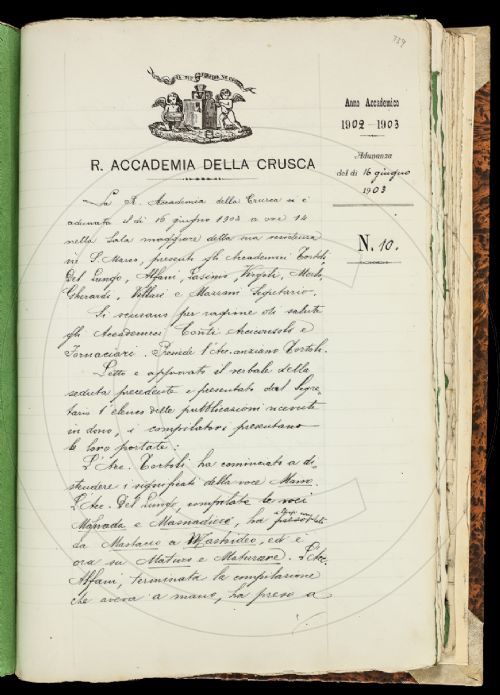 739
IL PIÙ BEL FIOR NE COGLIE
R. ACCADEMIA DELLA CRUSCA
Anno Accademico
1902-1903
Adunanza
del dì 16 giugno
1903
N. 10.
La R. Accademia della Crusca si è
adunata il dì 16 giugno 1903 a ore 14
nella Sala maggiore della sua residenza
in S. Marco, presenti gli Accademici Tortoli,
Del Lungo, Alfani, Tocci, Virgili,
Gherardi, Villari e Mazzoni Segretario.
Si scusano per ragione di salute
gli Accademici Conti Arciconsolo e
Fornaciari. Presiede l'Ac. anziano Tortoli.
Letto e approvato il verbale della
seduta precedente e presentato dal Segre-
tario l'elenco delle pubblicazioni ricevute
in dono, i compilatori presentano
le loro portate:
L'Acc. Tortoli ha cominciato a di-
stendere i significati della voce Mano.
L'Acc. Del Lungo, compilate le voci
Masnada e Masnadiere, ha
da Mastaco a Mastrideo, ed è
ora su Maturo e Maturare. L'Acc.
Alfani, terminata la compilazione
che aveva a mano, ha preso a